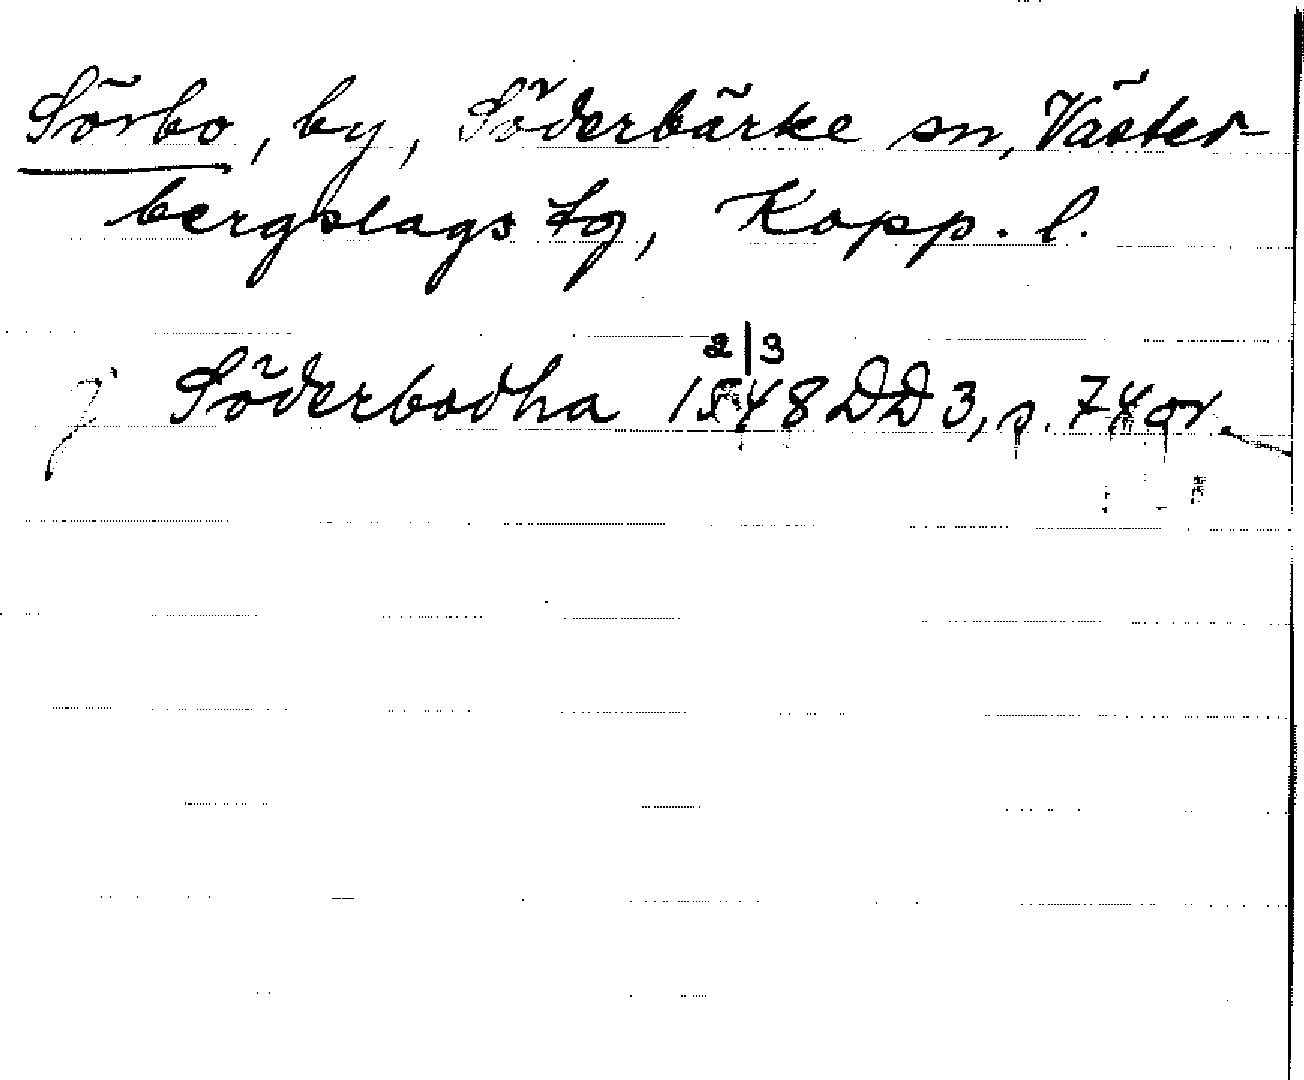 Sörbo, by, Söderbärke sn, Väster-
bergslags tg, Kopp. l.
2/3
j Söderbodha 1548 DD 3, s. 74 or.